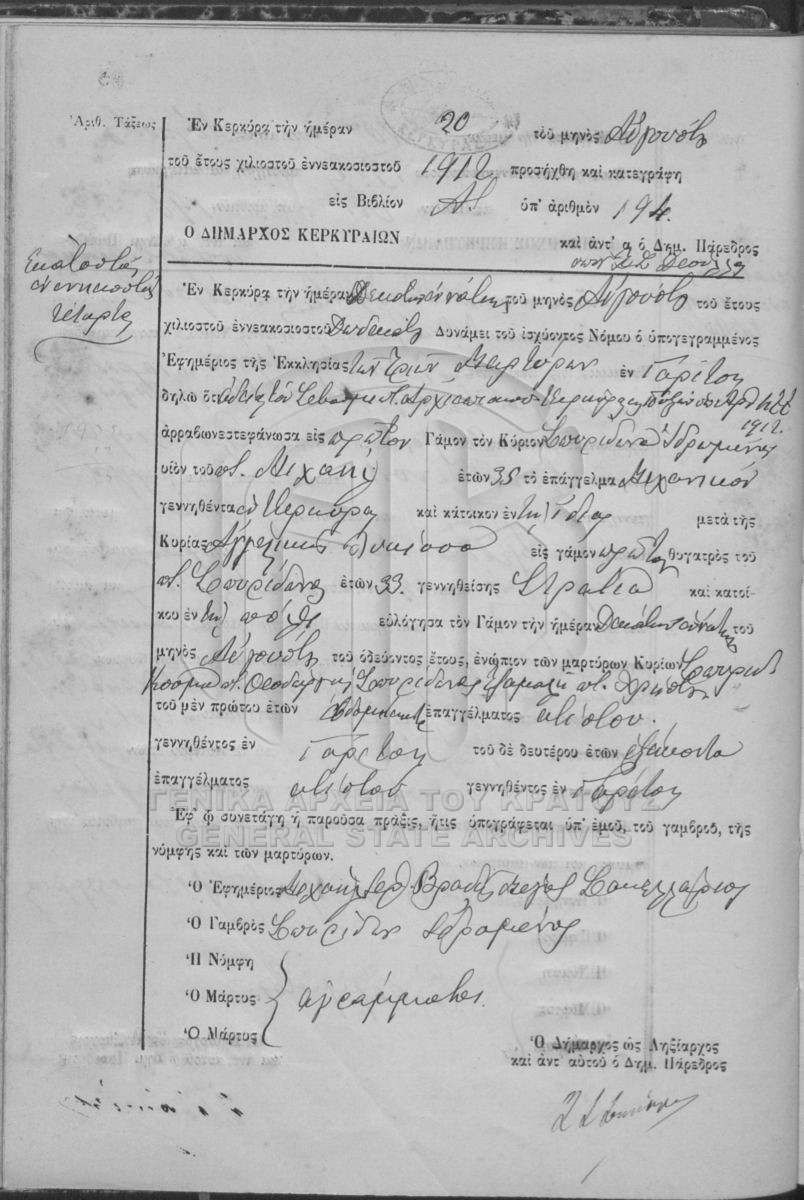 Ἀριθ. Τάξεως
Ἐν Κερκύρᾳ τὴν ἡμέραν 20 τοῦ μηνὸς Αὐγούστου
τοῦ ἔτους χιλιοστοῦ ἐννεακοσιοστοῦ 1912 προσήχθη καὶ κατεγράφη
εἰς Βιβλίον Α! ὑπ' ἀριθμὸν 194.
Ο ΔΗΜΑΡΧΟΣ ΚΕΡΚΥΡΑΙΩΝ
καὶ ἀντ' α ὁ Δημ. Πάρεδρος
Ἑκατοστὸς
ἐννενηκοστὸς
τέταρτος
Ἐν Κερκύρᾳ τὴν ἡμέραν Δεκάτην ἐννάτην τοῦ μηνὸς Αὐγούστου τοῦ ἔτους
χιλιοστοῦ ἐννεακοσιοστοῦ δωδεκάτου Δυνάμει τοῦ ἰσχύοντος Νόμου ὁ ὑπογεγραμμένος
Ἐφημέριος τῆς Ἐκκλησίας τῶν Τριῶν Μαρτύρων ἐν Γαρίτσῃ
δηλῶ ὅτι ἀδείᾳ τοῦ Σεβασμ. Ἀρχιεπισκόπου Κερκύρας
1912.
ἀρραβωνεστεφάνωσα εἰς πρῶτον Γάμον τὸν Κύριον Σπυρίδωνα Ἰδρωμένον
υἱὸν τοῦ π. Μιχαὴλ ἐτῶν 35 τὸ ἐπάγγελμα Μηχανικόν
γεννηθέντα ἐν Κερκύρᾳ καὶ κάτοικον ἐν τῇ ἰδίᾳ μετὰ τῆς
Κυρίας Ἀγγελικῆς εἰς γάμον πρῶτον θυγατρὸς τοῦ
π. Σπυρίδωνος ἐτῶν 33. γεννηθείσης Στρατιὰ καὶ κατοί-
κου ἐν τῇ πόλει εὐλόγησα τὸν Γάμον τὴν ἡμέραν Δεκάτην ἐννάτην τοῦ
μηνὸς Αὐγούστου τοῦ ὁδεύοντος ἔτους, ἐνώπιον τῶν μαρτύρων Κυρίων Σπυρίδ.
Κοσμᾶ π. Θεοδώρου Σπυρίδωνος π. Χρήστου
τοῦ μὲν πρώτου ἐτῶν ἑβδομήκοντα ἐπαγγέλματος κτίστου.
γεννηθέντος ἐν Γαρίτσῃ τοῦ δὲ δευτέρου ἐτῶν ἑξήκοντα
ἐπαγγέλματος κτίστου γεννηθέντος ἐν Γαρίτσῃ
ΓΕΝΙΚΑ ΑΡΧΕΙΑ ΤΟΥ ΚΡΑΤΟΥΣ
GENERAL STATE ARCHIVES
Ἐφ' ᾧ συνετάγη ἡ παροῦσα πράξις, ἥτις ὑπογράφεται ὑπ' ἐμοῦ, τοῦ γαμβροῦ, τῆς
νύμφης καὶ τῶν μαρτύρων.
Ὁ Ἐφημέριος Σακελλάριος
Ὁ Γαμβρὸς Σπυρίδων Ἰδρομένος
Ἡ Νύμφη
Ὁ Μάρτυς ἀγράμματοι.
Ὁ Μάρτυς
Ὁ Δήμαρχος ὡς Ληξίαρχος
καὶ ἀντ' αὐτοῦ ὁ Δημ. Πάρεδρος